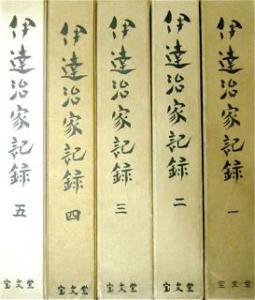 伊達治家記録 五 宝文堂
伊達治家記録 四 宝文堂
伊達治家記録 三 宝文堂
伊達治家記録 二 宝文堂
伊達治家記録 一 宝文堂